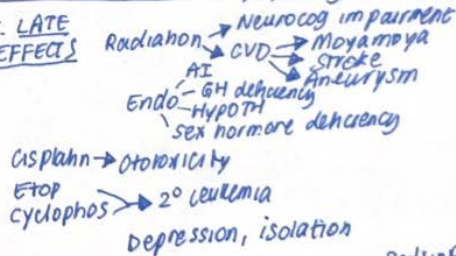 . LATE EFFECTS
Radiation → Neurocog impairment
→ CVD → Moyamoya
→ Stroke
→ Aneurysm
Endo AI
GH deficiency
HYPOTH
sex hormone deficiency
Cisplatin → Ototoxicity
Etop
Cyclophos → 2° leukemia
Depression, isolation